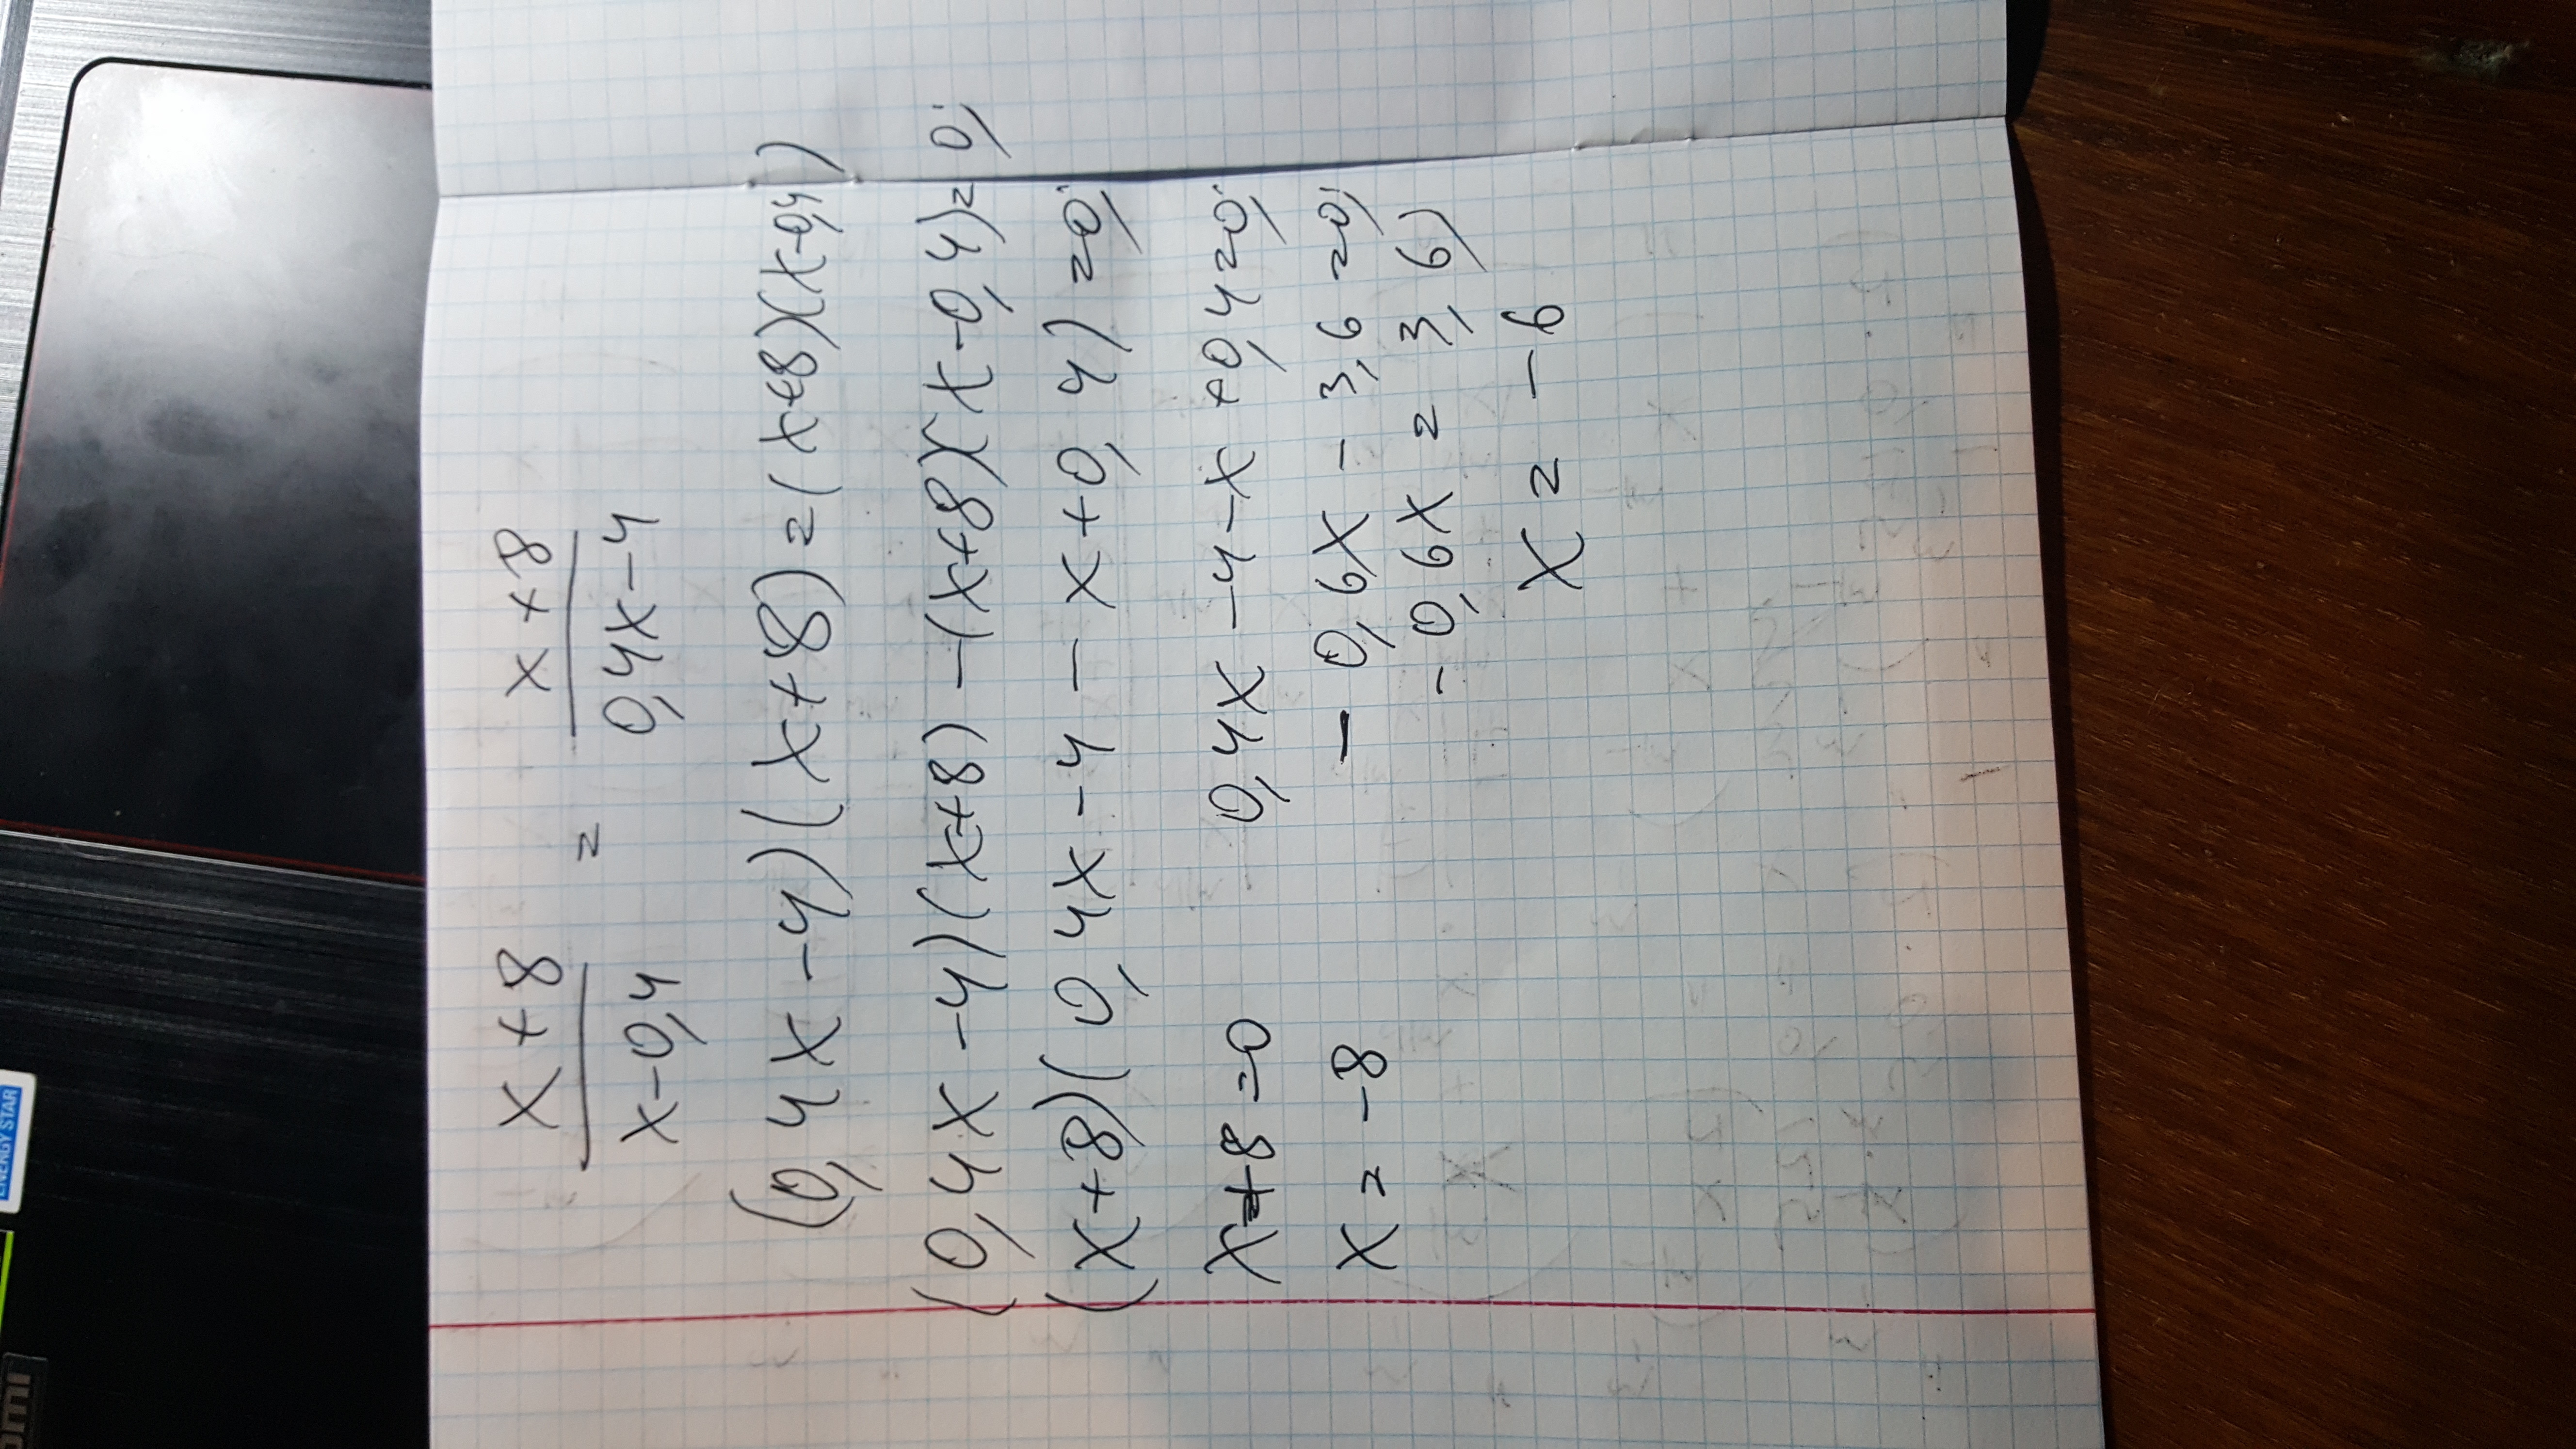 x+8 / x-0,4 = x+8 / 0,4x-4
(0,4x-4)(x+8)=(x+8)(x-0,4)
(0,4x-4)(x+8)-(x+8)(x-0,4)=0;
(x+8)(0,4x-4-x+0,4)=0;
x+8=0 0,4x-4-x+0,4=0;
x=-8 -0,6x-3,6=0;
-0,6x=3,6;
x=-6
ENERGY STAR